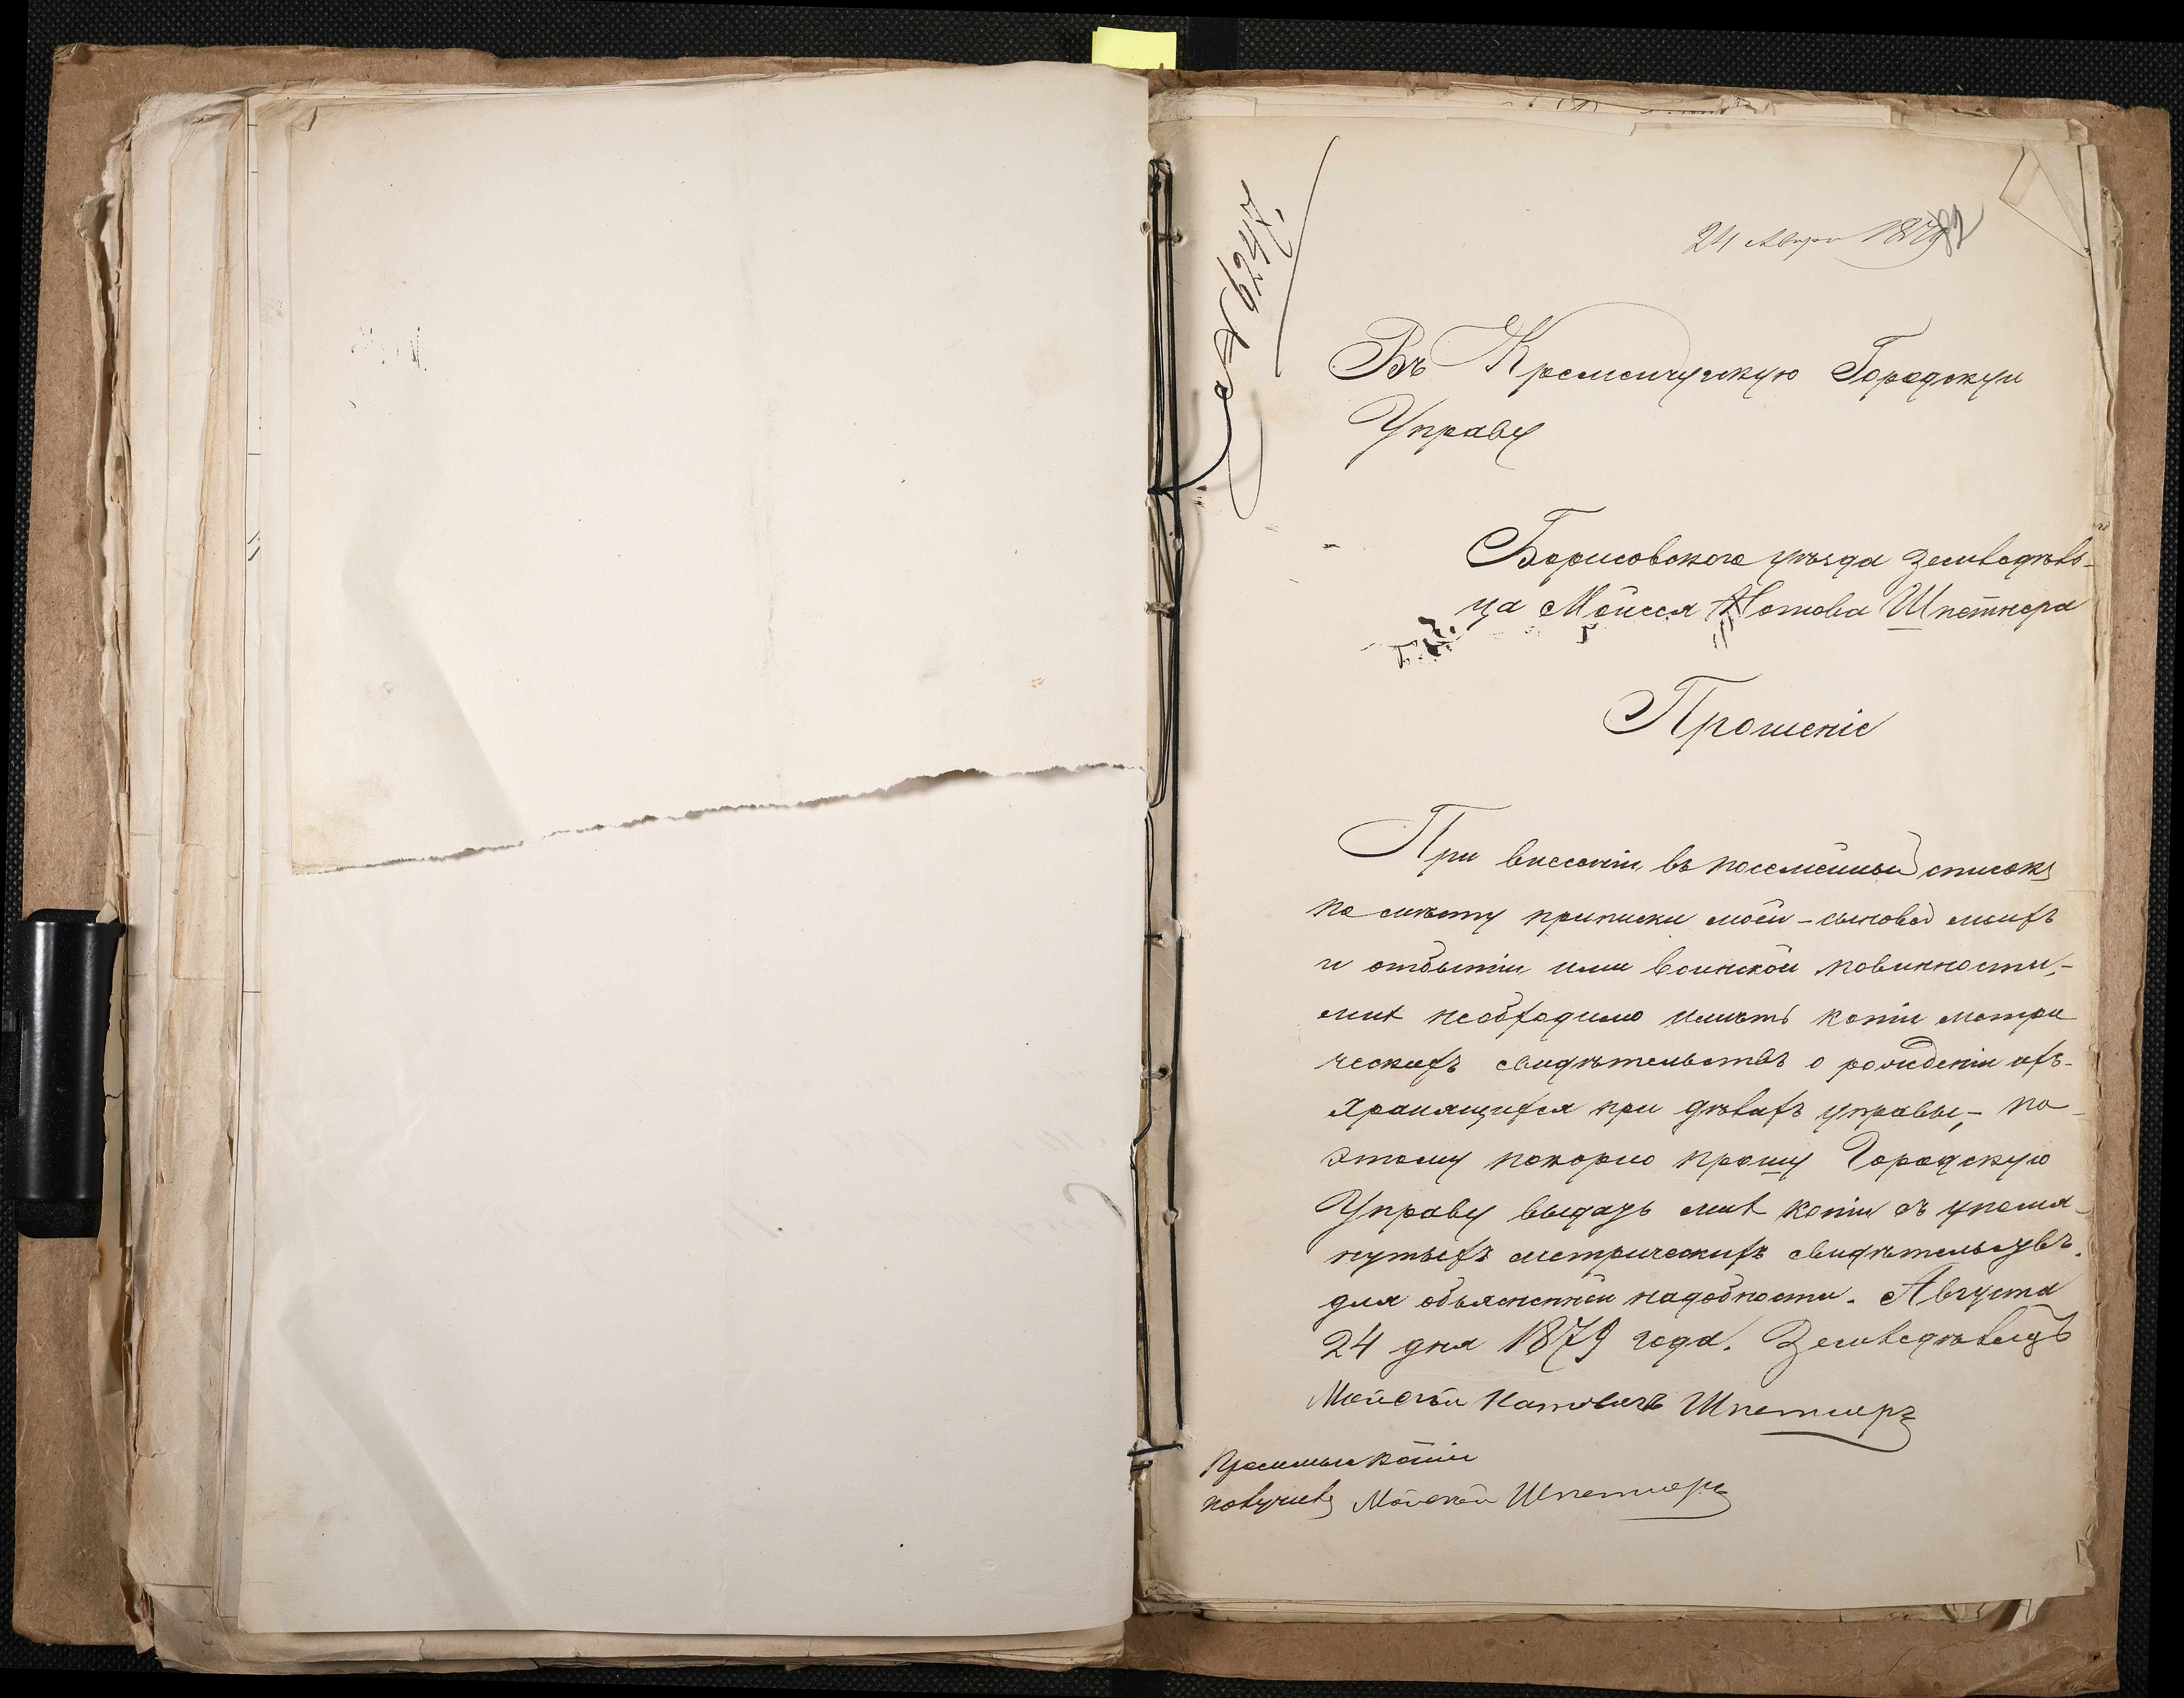 24 Авгус 1879
Въ Кременчугскую Городскую
Управу
Борисовскаго уѣзда земледѣль-
ца Мойсея Нотова Шпетнера
Прошеніе
При внесеніи въ посемейный списокъ
по мѣсту приписки моей - сыновей моихъ
и отбытіи ими воинской повинности, -
мнѣ необходимо имѣть копіи метри
ческихъ свидѣтельствъ о рожденіи ихъ -
хранящихся при дѣлахъ управы, - по-
этому покорно прошу Городскую
Управу выдать мнѣ копіи съ упомя-
нутыхъ метрическихъ свидѣтельствъ.
для объясненной надобности. Августа
24 дня 1879 года. Земледѣлецъ
Мойсѣй Нотовичъ Шпетнеръ
Просимыя копіи
получилъ Мойсей Шпетнеръ